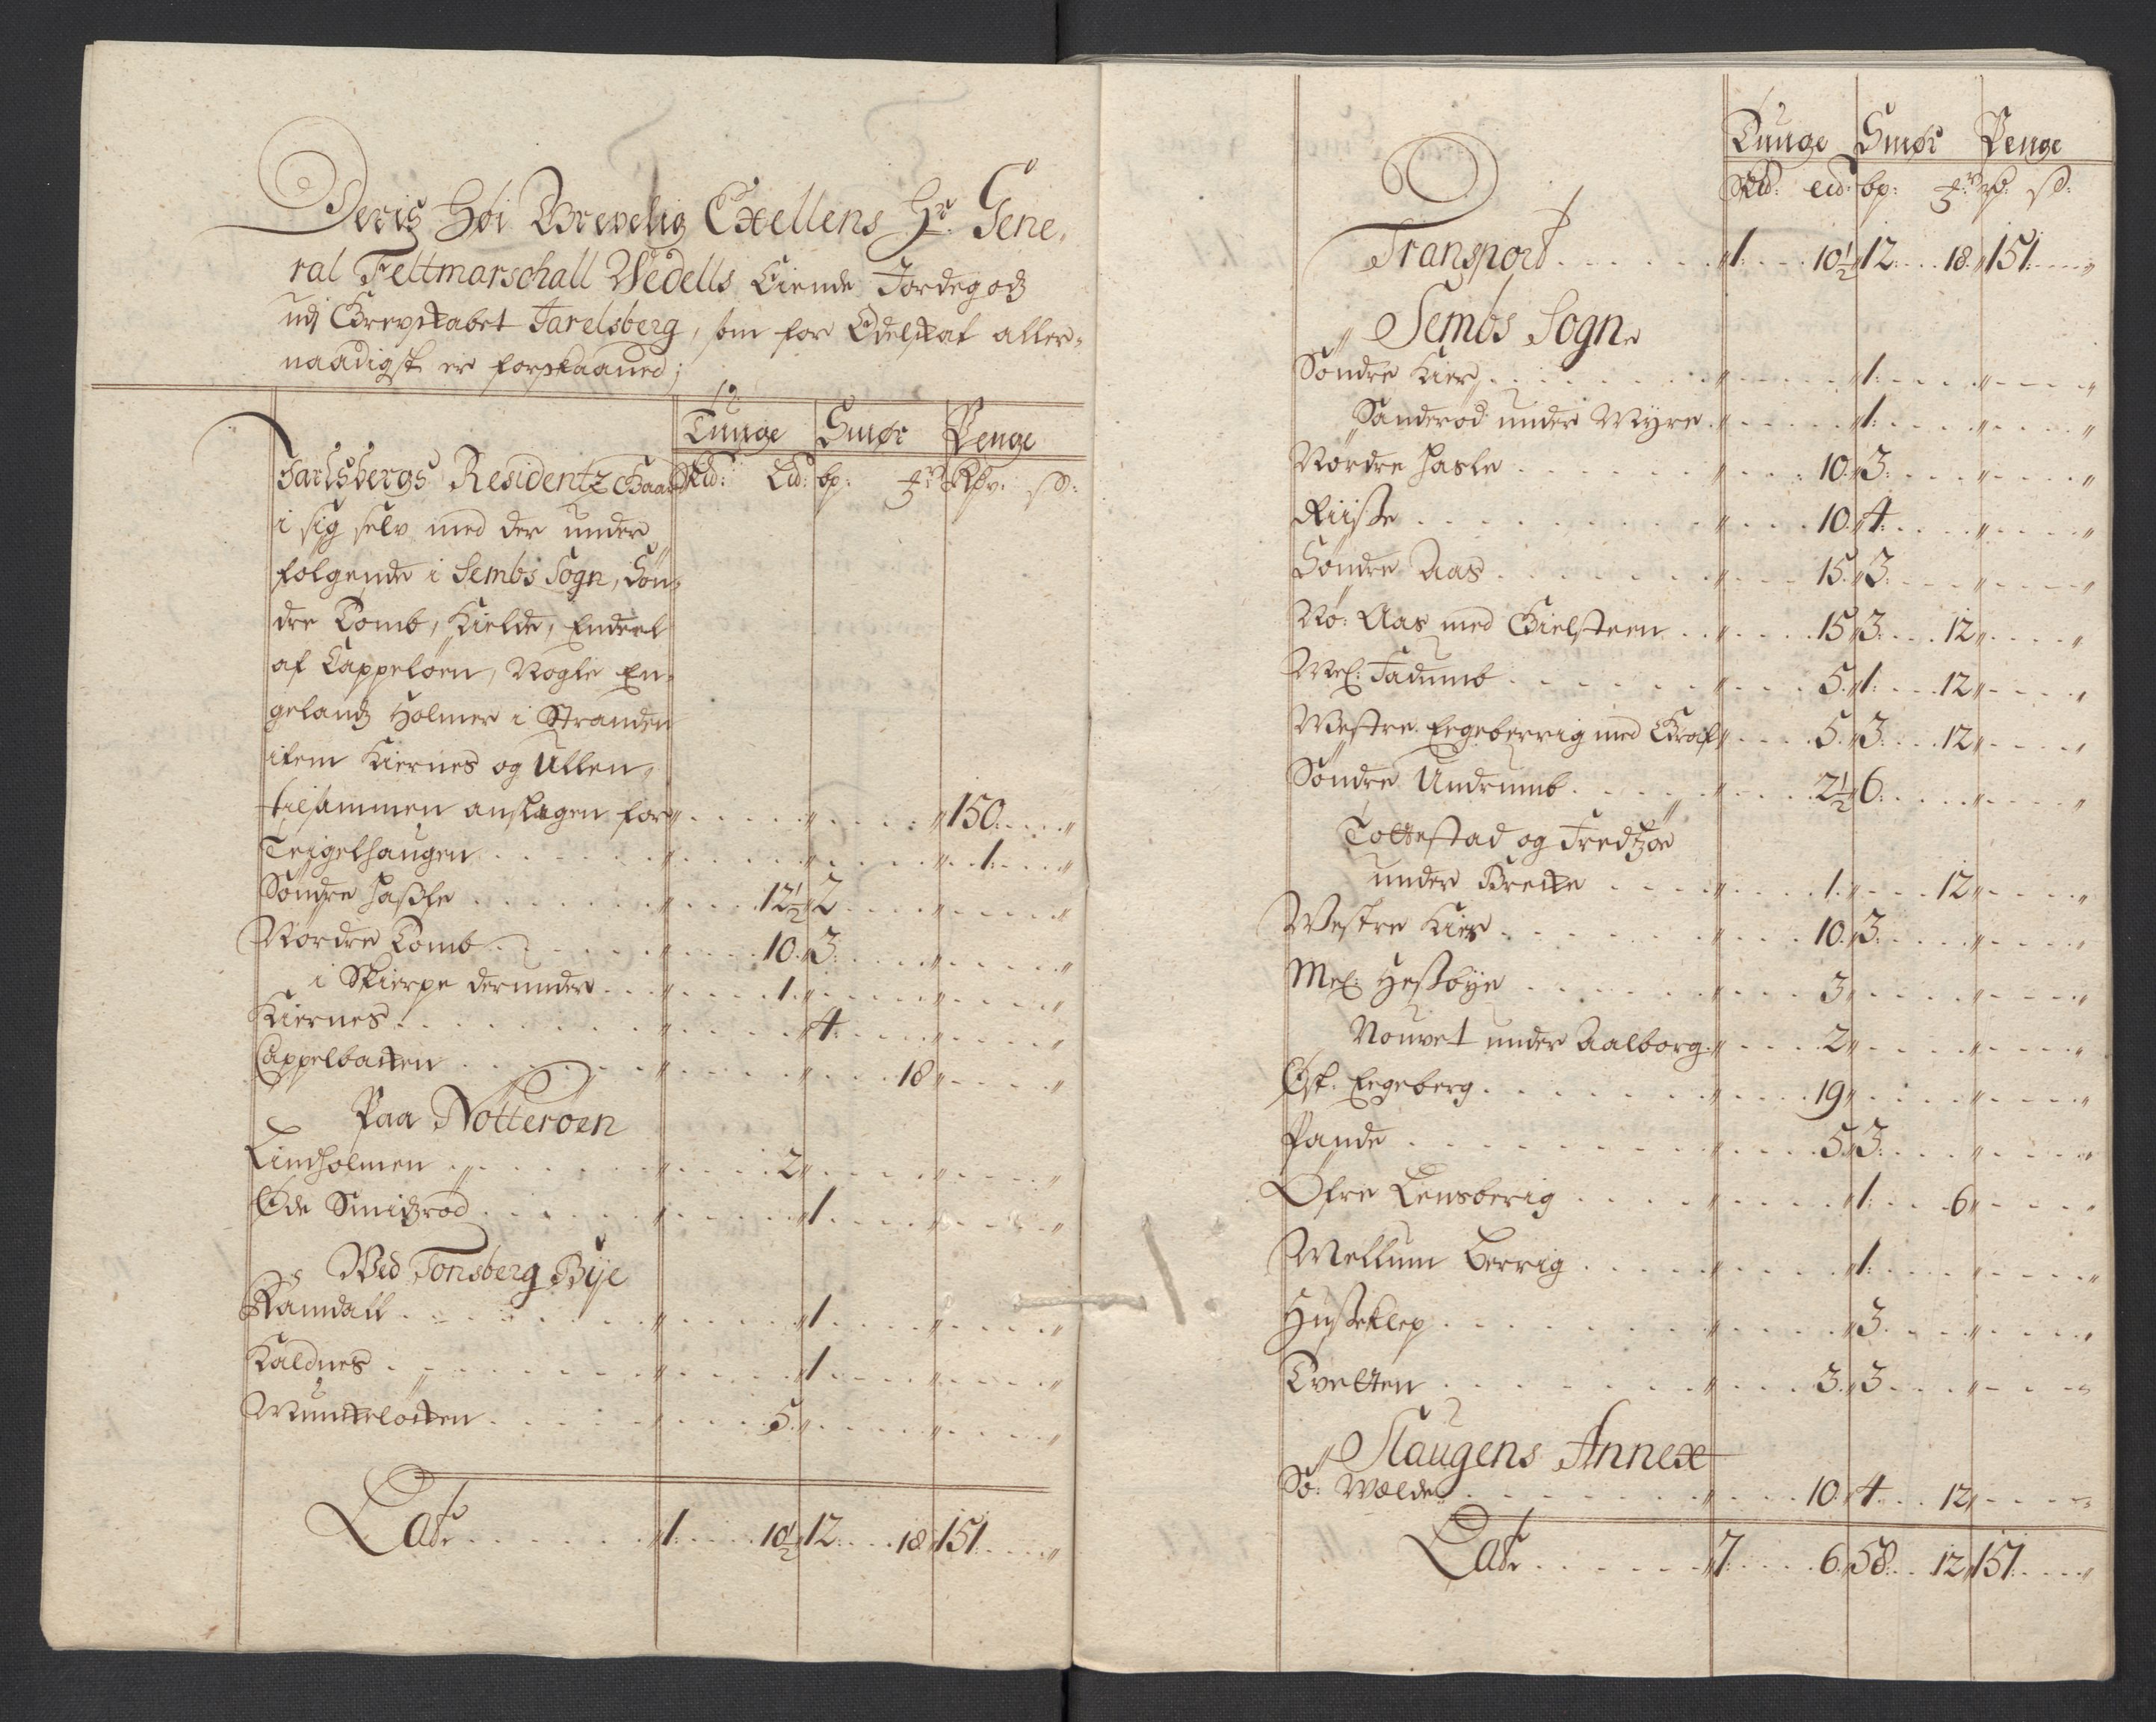 Deris Høi Grevelig Exellens Hr. Gene-
ral Feltmarschall Wedells Eiende Jordegodz
udj Grevskabet Jarelsberg, som for Edelskaf aller-
naadigst er forskaaned;
Tunge Smør Penge
Skd: Lid: bp: Rdr. s:
Jarlsbergs Residentz Gaard
i sig selv med der under
følgende i Sembs Sogn, Søn-
dre Tomb, Kielde, Endeel
af Cappeløen, Nogle En-
gelandz Holmer i Stranden
item Kiernes og Ullen,
tilsammen anslagen for " " " 150: "
Teigelhaugen " " " 1: "
Søndre Hassle " 12½ " 2 " "
Nordre Tomb " 10 " 3: " "
i Skierpe derunder " 1 " " "
Kiernes " " 4: " "
Cappelbacken " " 18 " "
Paa Nötteröen
Lindholmen " 2 " " "
Øde Smidzrød " " 1 " "
Wed Tonsberg Bÿe
Ramdall " " 1 " "
Kaldnes " " 1 " "
Munckeløcken " 5 " " "
Latr " 1: 10½ " 12: 18 " 151: "
Tunge Smør Penge
Skd: Lid: bp: rd: s:
Transport " 1: 10½ " 12: 18 " 151: "
Sembs Sogn
Søndre Kier " " 1: " "
Sanderød under Myre " " 1: " "
Nordre Hasle " 10 " 3: " "
Riisse " 10 " 4: " "
Søndre Aas " 15 " 3: " "
Nø: Aas med Gielsteen " 15 " 3: 12 " "
Mel: Fadumb " 5 " 1: 12 " "
Westre Eegeberrig med Graf " 5 " 3: 12 " "
Søndre Undrumb " 2½ " 6: " "
Tollestad og Fredzøe
under Brecke " 1: " 12 " "
Westre Kier " 10 " 3: " "
Mel: Hessbÿe " 3 " " "
Nouvet under Aalborg " 2 " " "
Øst. Eegeberg " 19 " " "
Pande " 5 " 3: " "
Øfre Lensberig " " 1: 6 " "
Mellum Berrig " " 1: " "
Husseklep " " 3 " "
Tvetten " 3 " 3 " "
Slaugens Annex
Sø: Wælde " 10 " 4 12 " "
Latr " 7: 6 " 58: 12 " 151: "